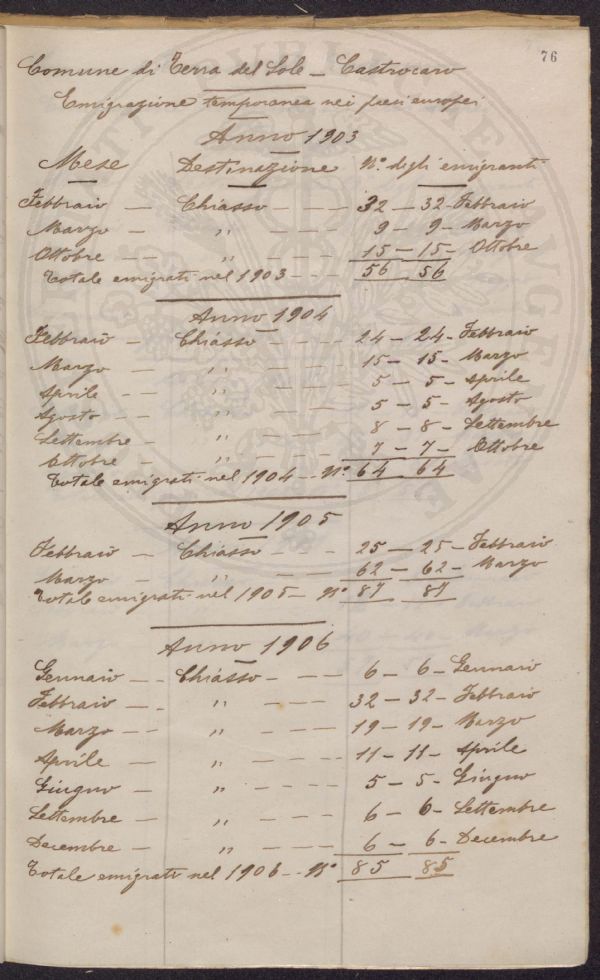 76
Comune di Terra del Sole - Castrocaro
Emigrazione temporanea nei paesi europei
Anno 1903
Mese Destinazione N.° degli emigranti
Febbraio — Chiasso - - - 32 — 32 - Febbraio
Marzo — „ - - - 9 — 9 - Marzo
Ottobre - - „ - - - 15 — 15 - Ottobre
Totale emigrati nel 1903 - - - 56 56
Anno 1904
Febbraio — Chiasso - - - - 24 — 24 - Febbraio
Marzo — „ - - - 15 — 15 - Marzo
Aprile - - „ - - - 5 — 5 - Aprile
Agosto - - „ - - - 5 — 5 - Agosto
Settembre - „ - - - 8 — 8 - Settembre
Ottobre - „ - - - 7 — 7 - Ottobre
Totale emigrati nel 1904 - - N.° 64 64
Anno 1905
Febbraio — Chiasso - - - 25 — 25 - Febbraio
Marzo - „ - - 62 — 62 - Marzo
Totale emigrati nel 1905 - N.° 87 87
Anno 1906
Gennaio - - Chiasso - - - - 6 — 6 - Gennaio
Febbraio - - „ - - - - 32 — 32 - Febbraio
Marzo - - „ - - - - 19 — 19 - Marzo
Aprile - - „ - - - - 11 — 11 - Aprile
Giugno - „ - - - 5 — 5 - Giugno
Settembre - „ - - - 6 — 6 - Settembre
Decembre - „ - - - 6 — 6 - Decembre
Totale emigrati nel 1906 - - N.° 85 85